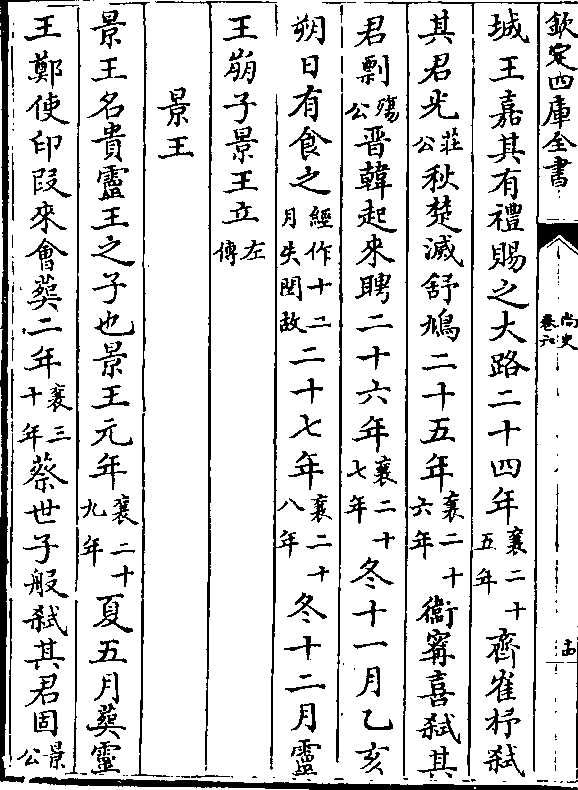 欽定四庫全書
尚史
卷六
城王嘉其有禮賜之大路二十四年襄二十五年齊崔杼弑
其君光莊公秋楚滅舒鳩二十五年襄二十六年衞甯喜弑其
君剽殤公晋韓起來聘二十六年襄二十七年冬十一月乙亥
朔日有食之經作十二月失閏故二十七年襄二十八年冬十二月靈
王崩子景王立左傳
景王
景王名貴靈王之子也景王元年襄二十九年夏五月葬靈
王鄭使印段來會葬二年襄三十年蔡世子般弑其君固景公